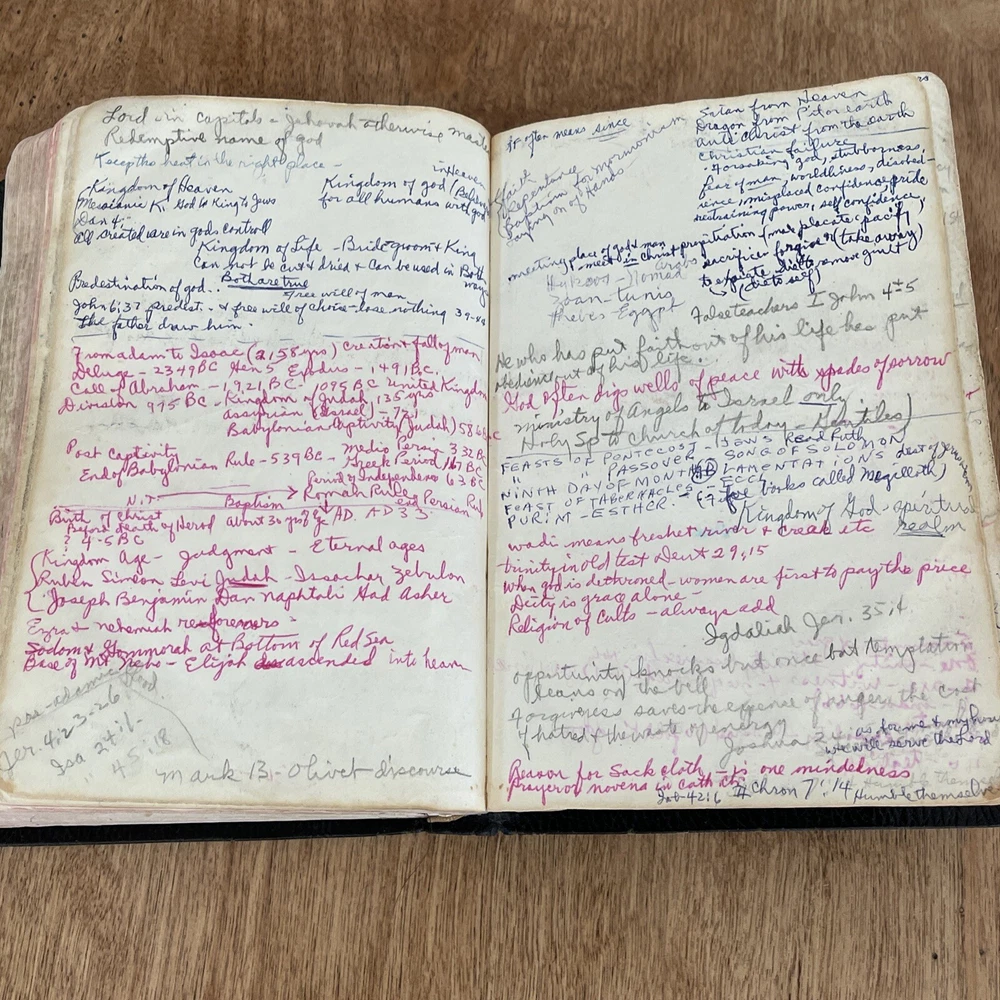 Lord in capitals = Jehovah otherwise
Redemptive name of god
Keeps the heart in the right place -
in Heaven
Kingdom of Heaven
Kingdom of god
Messianic K. God to King to Jews
for all humans with god
Dan 4:-
all created are in gods control
Kingdom of Life - Bridegroom & King
can not be cut & dried & can be used in Both
ways
Both are true
Predestination of god.. free will of man
John 6:37 predest. & free will of choice - lose nothing 39-40
the father draw him.
From adam to Isaac (2,158 yrs) creation & fall of man
Deluge - 2349 BC Gen 5 Exodus - 1491 BC.
Call of Abraham - 1921 BC - 1095 BC United Kingdom
Division 975 BC - Kingdom of Judah, 135 yrs
assyrian (Israel) - 721
Babylonian Captivity (Judah) 586 BC
Post captivity
Medio Persian 332 BC
End of Babylonian Rule - 539 BC - Greek Period 167 BC
Period of Independence 63 BC
Roman Rule
N.T. Baptism end Persian Rule
Birth of Christ about 30 yrs of age AD. AD 33
Before death of Herod
? 4-5 BC
Kingdom Age - Judgment - Eternal ages
Ruben Simeon Levi Judah - Issachar Zebulon
Joseph Benjamin Dan Naphtali Gad Asher
Ezra & Nehemiah reformers -
Sodom & Gommorah at Bottom of Red Sea
Base of Mt Nebo - Elijah ascended into heaven
Pre-adamic flood.
Jer. 4:23-26
Isa 24:1-
" 45:18
Mark 13 - Olivet discourse
If often means since
faith
repentance
Baptism for Mormonism
laying on of hands
Satan from Heaven
Dragon from Pit or earth
anti Christ from the earth
Christian failure
- forsaking god, stubborness,
fear of man, worldliness, disobed-
ience, misplaced confidence pride
restraining power, self confidence,
meeting place of god & man
- meet in Christ & propitiation (means placate: pacify)
sacrifice forgive & (take away)
to expiate sin to remove guilt
(die to self)
Hyksos - Nomad Arabs
Zoan - Tunis
Thebes - Egypt
False teachers I John 4+5
He who has put faith out of his life has put
obedience out of his life.
God often digs wells of peace with spades of sorrow
ministry of Angels to Israel only
Holy Sp to Church of today - Gentiles)
FEASTS OF PONTECOST - JEWS Read Ruth
" PASSOVER - SONG OF SOLOMON
NINTH DAY OF MONTH AB LAMENTATIONS dest of Jerusalem
FEAST OF TABERNACLES - ECCL
PURIM - ESTHER. - (five books called Megilloth)
Kingdom of God - spiritual
realm
wadi means freshet river & creek etc
trinity in old test Deut 29,15
When god is dethroned - women are first to pay the price
Deity is grace alone -
Religion of Cults - always add
Igdaliah Jer. 35:4
opportunity knocks but once but temptation
leans on the bell
Forgiveness saves the expense of anger, the cost
of hatred & the waste of energy
Joshua 24 as for me & my house
we will serve the Lord
Reason for Sack cloth - is one mindedness
Prayer or novena in Catholic
Job-42:6 II Chron 7:14 Humble themselves